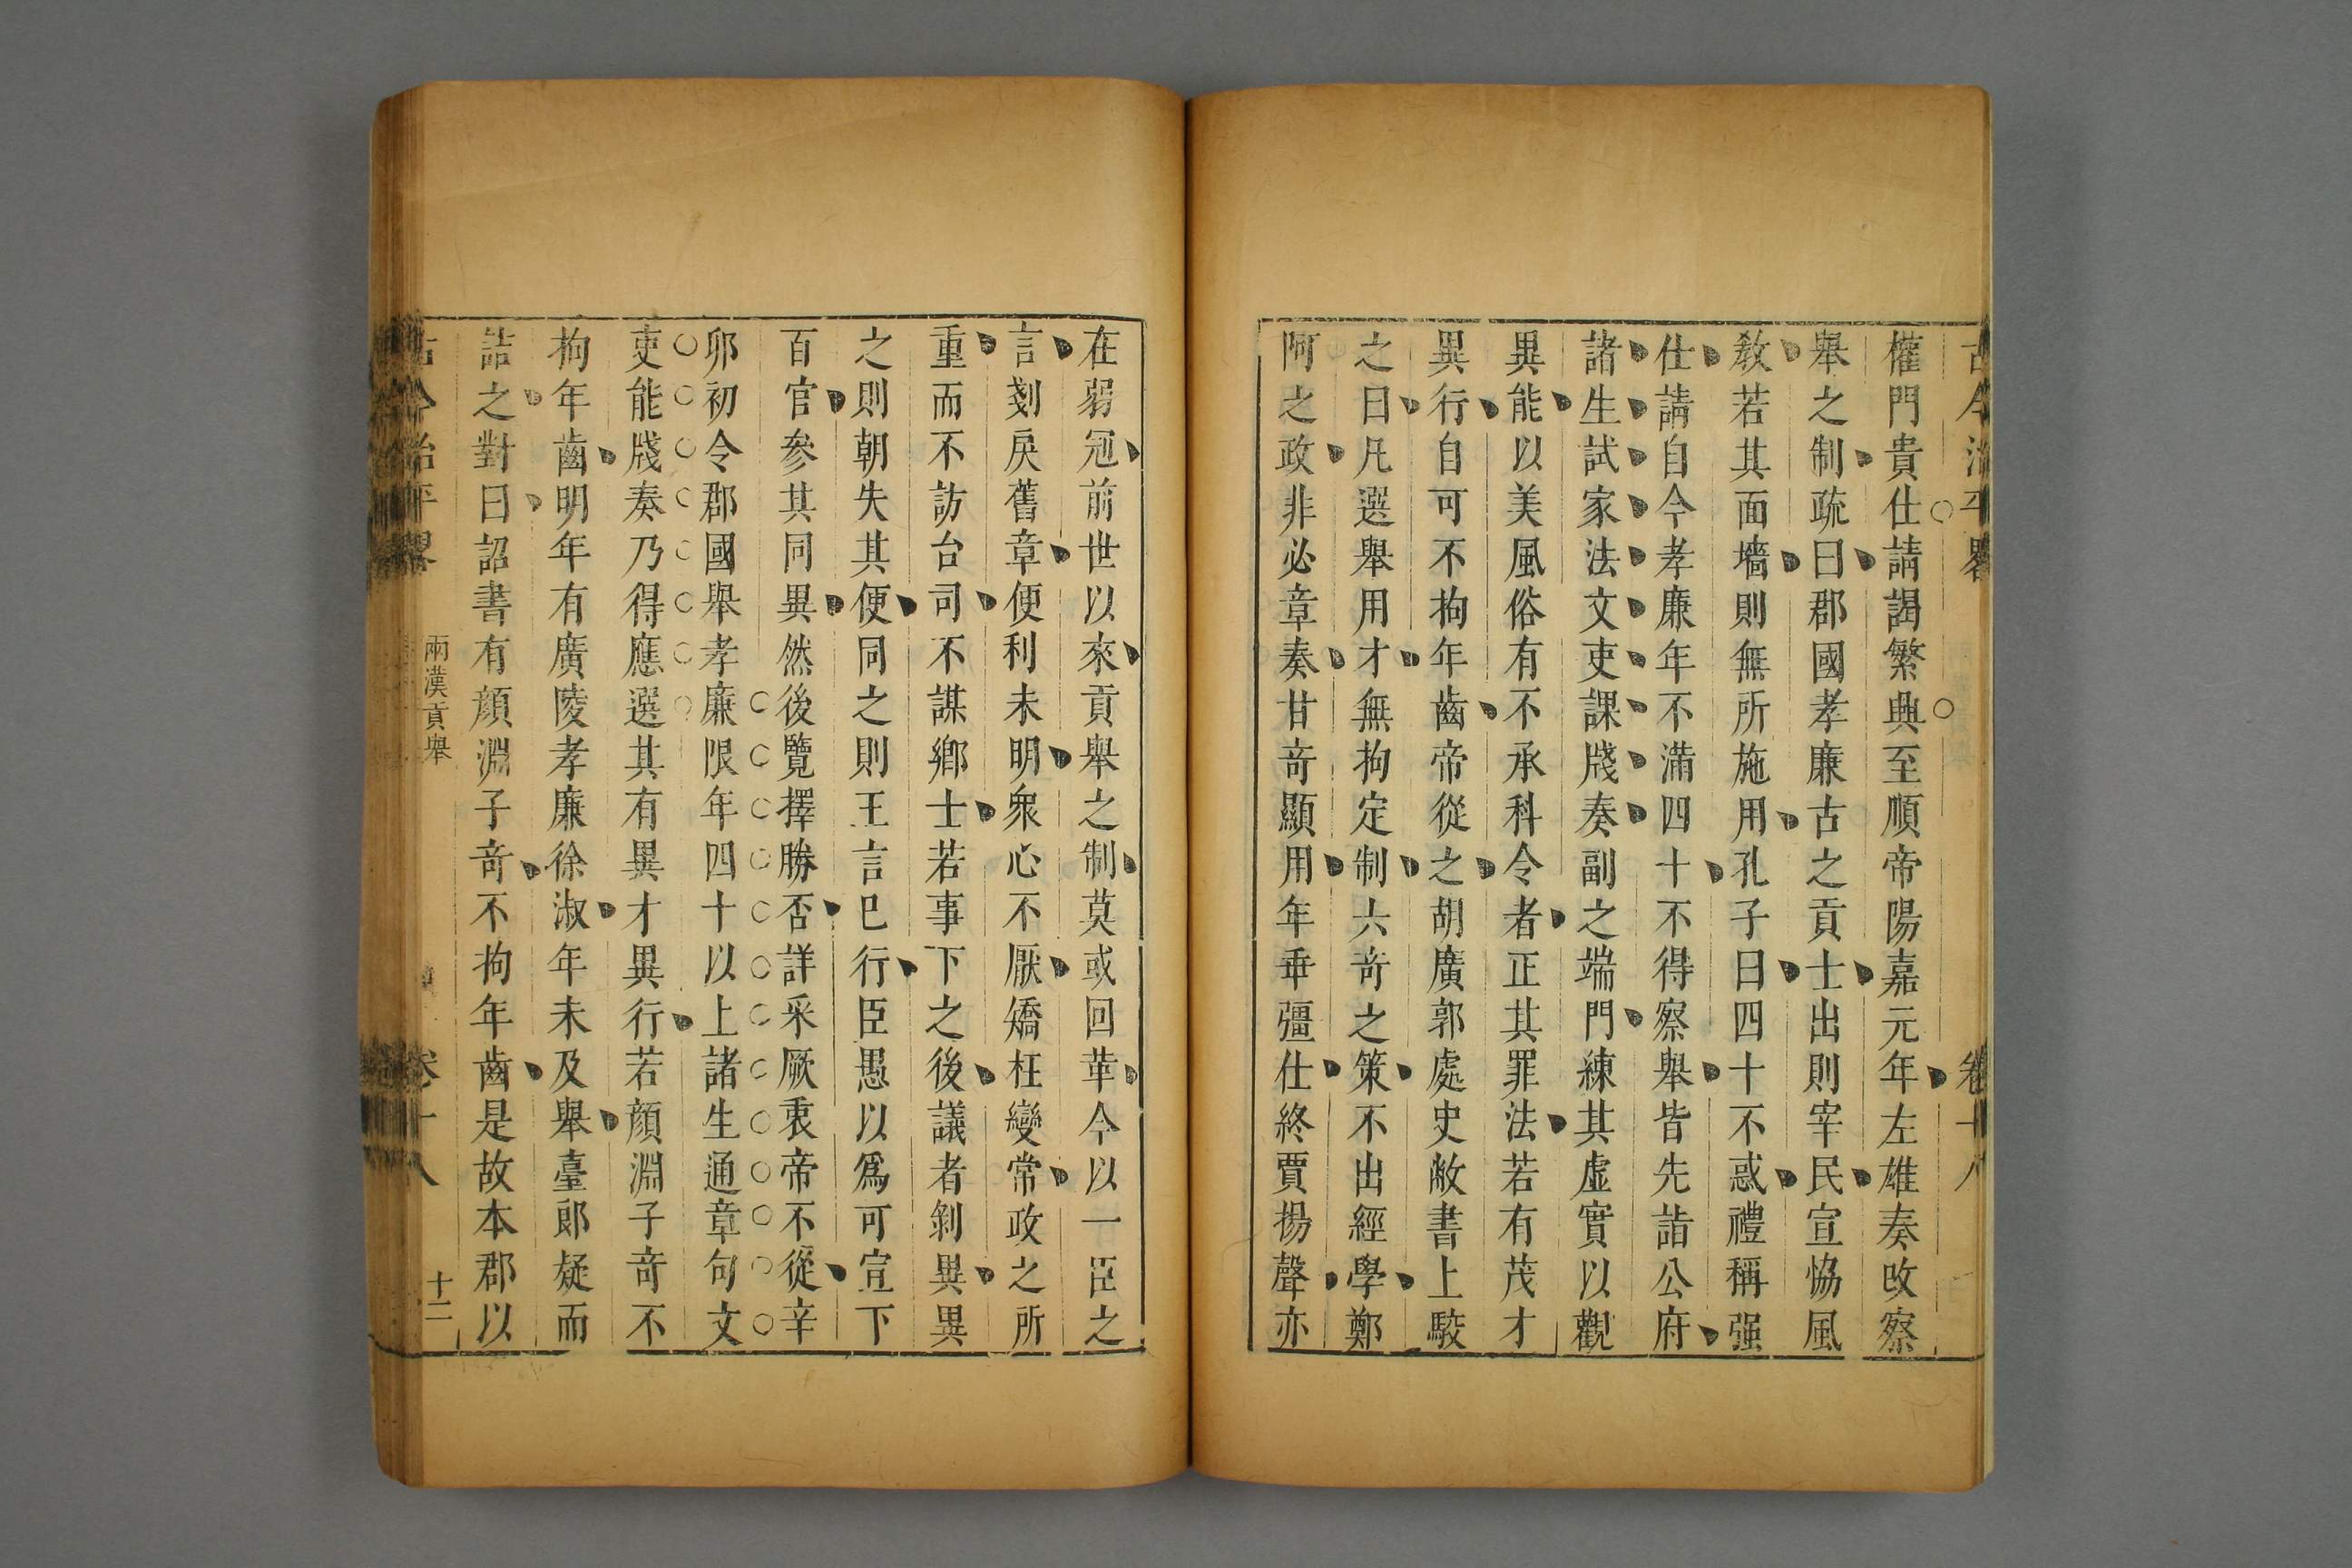 古今治平畧
卷十八
權門貴仕請謁繁興至順帝陽嘉元年左雄奏改察
舉之制疏曰郡國孝廉古之貢士出則宰民宣恊風
教若其面墻則無所施用孔子曰四十不惑禮稱强
仕請自今孝廉年不滿四十不得察舉皆先詣公府
諸生試家法文吏課牋奏副之端門練其虛實以觀
異能以美風俗有不承科令者正其罪法若有茂才
異行自可不拘年齒帝從之胡廣郭處史敞書上駮
之曰凡選舉用才無拘定制六奇之策不出經學鄭
阿之政非必章奏甘奇顯用年乖彊仕終賈揚聲亦
在弱冠前世以來貢舉之制莫或回革今以一臣之
言剗戾舊章便利未明衆心不厭矯枉變常政之所
重而不訪台司不謀鄉士若事下之後議者剝異異
之則朝失其便同之則王言已行臣愚以爲可宣下
百官參其同異然後覽擇勝否詳采厥衷帝不從辛
卯初令郡國舉孝廉限年四十以上諸生通章句文
吏能牋奏乃得應選其有異才異行若顔淵子奇不
拘年齒明年有廣陵孝廉徐淑年未及舉臺郞疑而
詰之對曰詔書有顔淵子奇不拘年齒是故本郡以
古今治平畧
兩漢貢舉
卷十八
十二